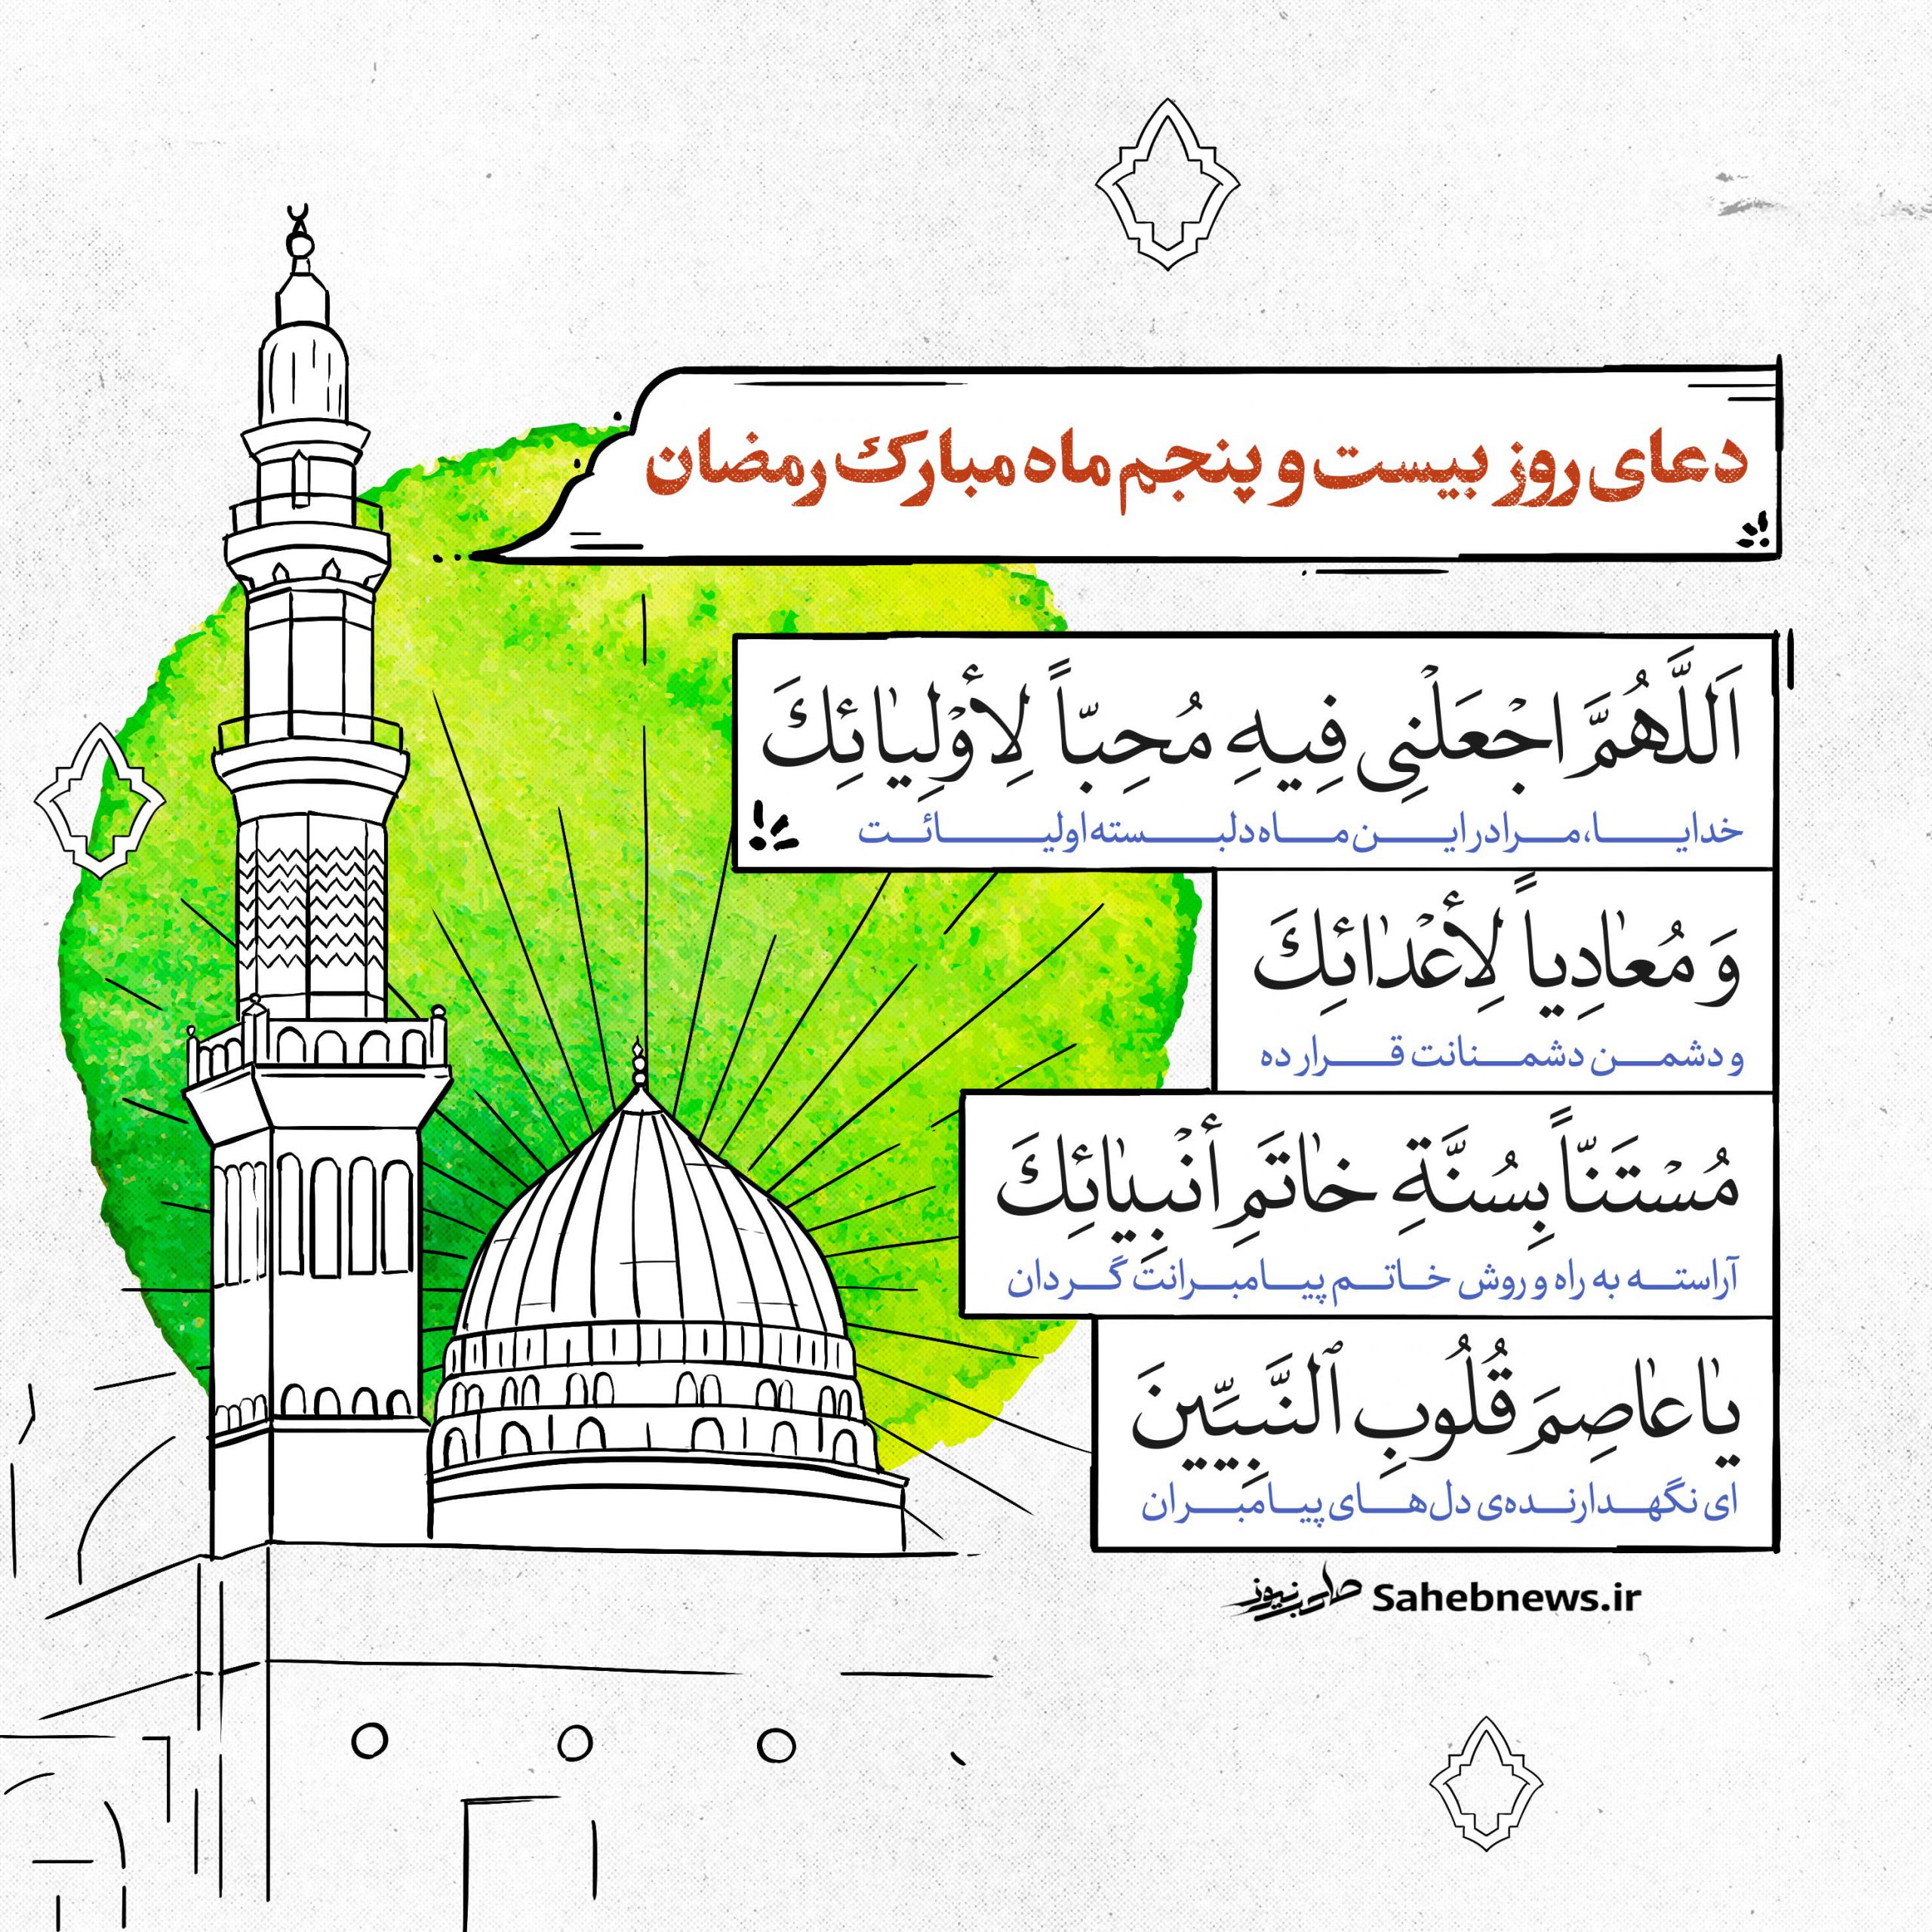 دعای روز بیست و پنجم ماه مبارک رمضان
اَللَّهُمَّ اجْعَلْنِی فِیهِ مُحِبّاً لِأَوْلِیٰائِكَ
خدایا، مرا در این ماه دلبسته اولیائت
وَ مُعٰادِیاً لِأَعْدٰائِكَ
و دشمن دشمنانت قرار ده
مُسْتَنّاً بِسُنَّةِ خٰاتَمِ أَنْبِیٰائِكَ
آراسته به راه و روش خاتم پیامبرانت گردان
یٰا عٰاصِمَ قُلُوبِ ٱلنَّبِیِّینَ
ای نگهدارنده‌ی دل‌های پیامبران
صاحب نیوز Sahebnews.ir